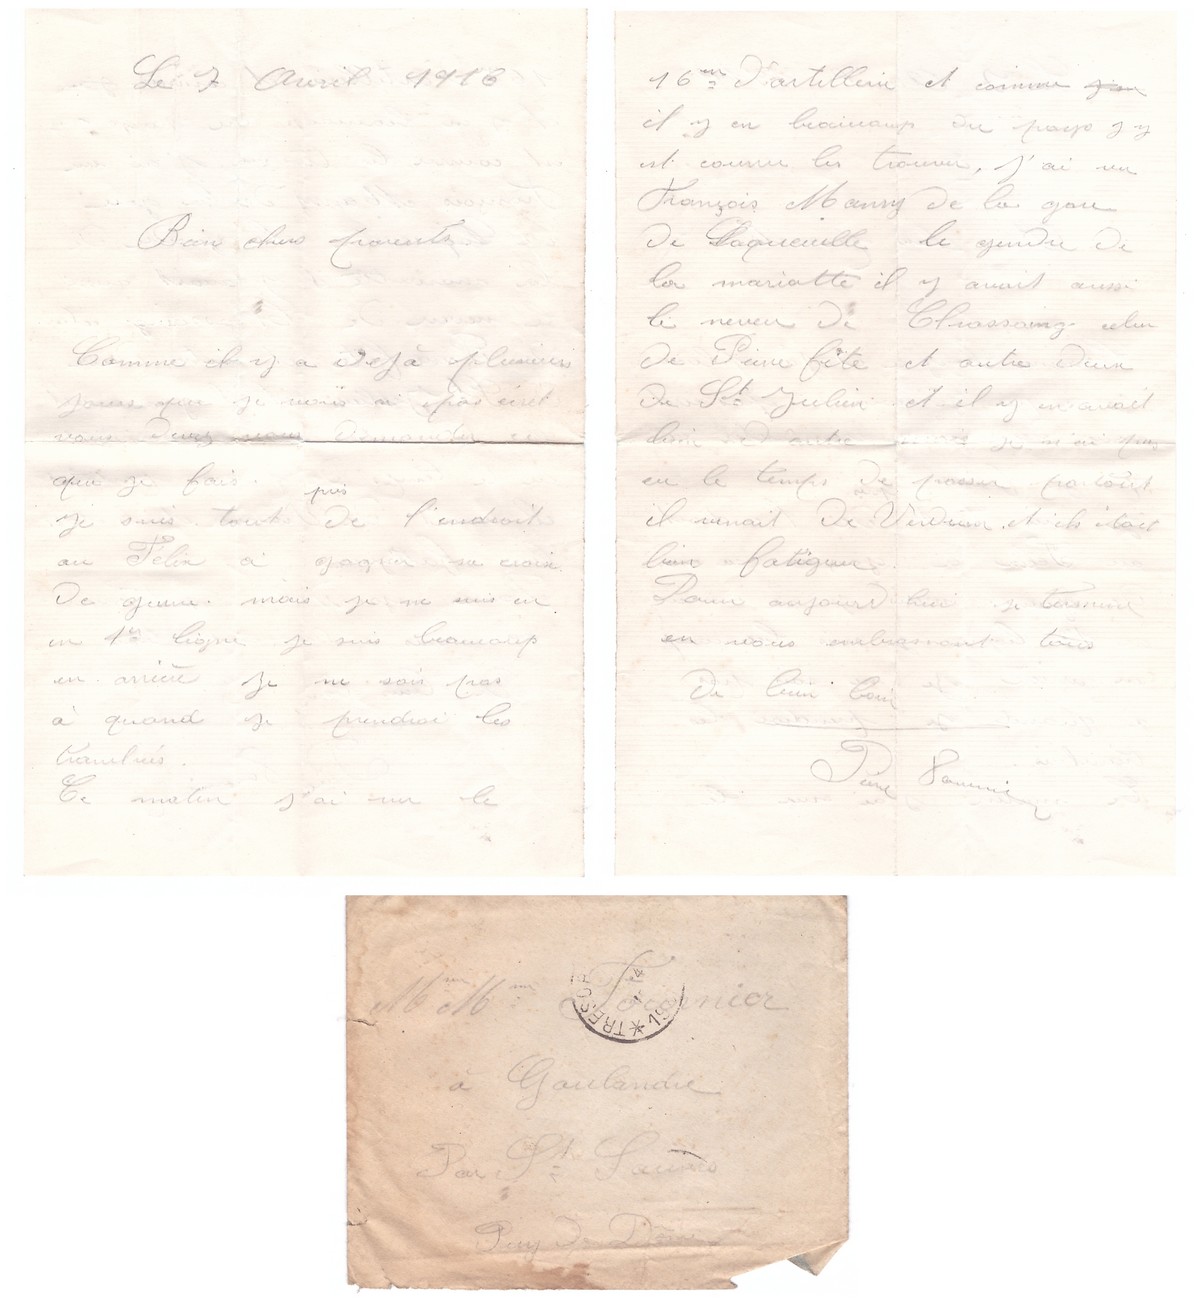 Le 7 Avril 1916
Bien chers parents
Comme il y a dejà plusieurs
jours que je vous ai pas écrit
vous devez vous demander ce
que je fais.
je suis tout près de l'endroit
au Félix à gagner sa croix
de guerre. mais je ne suis en
en 1re ligne je suis beaucoup
en arrière je ne sais pas
à quand je prendrai les
tranchés.
Ce matin j'ai vu le
16me d'artillerie et comme
il y en beaucoup du pays j y
est courru les trouver, j'ai vu
François Manry de la gare
de Laqueuille le gendre de
la mariotte il y avait aussi
le neveu de Chassaing celui
de Pierre fite et autre deux
de St Julien et il y en avait
bien d autre mais je n'ai pas
eu le temps de passer partout
il venait de Verdun et ils était
bien fatiguer.
Pour aujourd hui je termine
en vous embrassant tous
de bien loin
Pierre
Mr Mme Fournier
à Goulandie
Par St Sauves
Puy de Dôme
TRESOR * 161